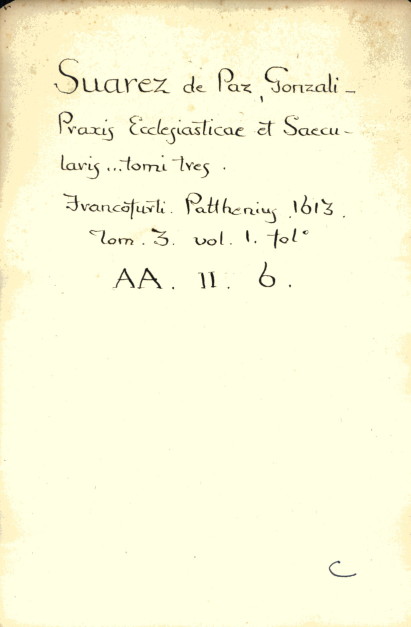 Suarez de Paz, Gonzali -
Praxis Ecclesiasticae et Saecu-
laris ... tomi tres.
Francofurti. Patthenius. 1613.
Tom. 3. vol. 1. fol°
AA. 11. 6.
C